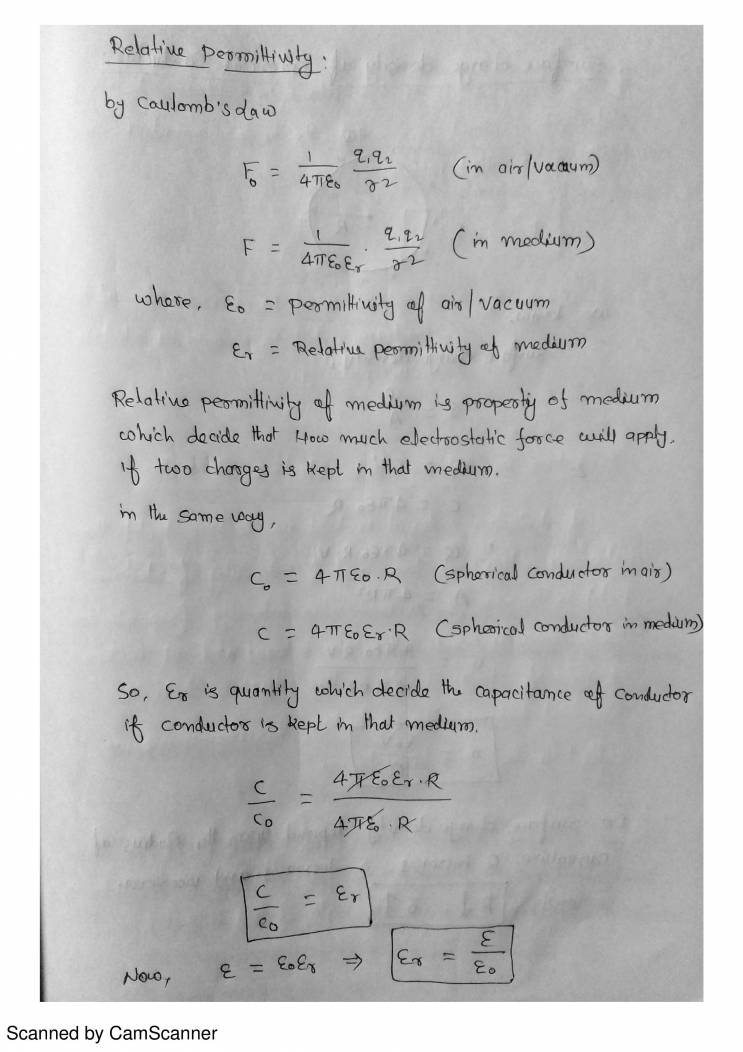 Relative Permittivity :
by Caulomb's law
F₀ = 1/4πε₀ q₁q₂/r² (in air/vacuum)
F = 1/4πε₀εᵣ · q₁q₂/r² (in medium)
where, ε₀ = permittivity of air/vacuum
εᵣ = Relative permittivity of medium
Relative permittivity of medium is property of medium
which decide that How much electrostatic force will apply.
if two charges is kept in that medium.
in the same way,
C₀ = 4πε₀·R (spherical conductor in air)
C = 4πε₀εᵣ·R (spherical conductor in medium)
So, εᵣ is quantity which decide the capacitance of conductor
if conductor is kept in that medium.
C/C₀ = 4πε₀εᵣ·R / 4πε₀·R
C/C₀ = εᵣ
Now, ε = ε₀εᵣ ⇒ εᵣ = ε/ε₀
Scanned by CamScanner